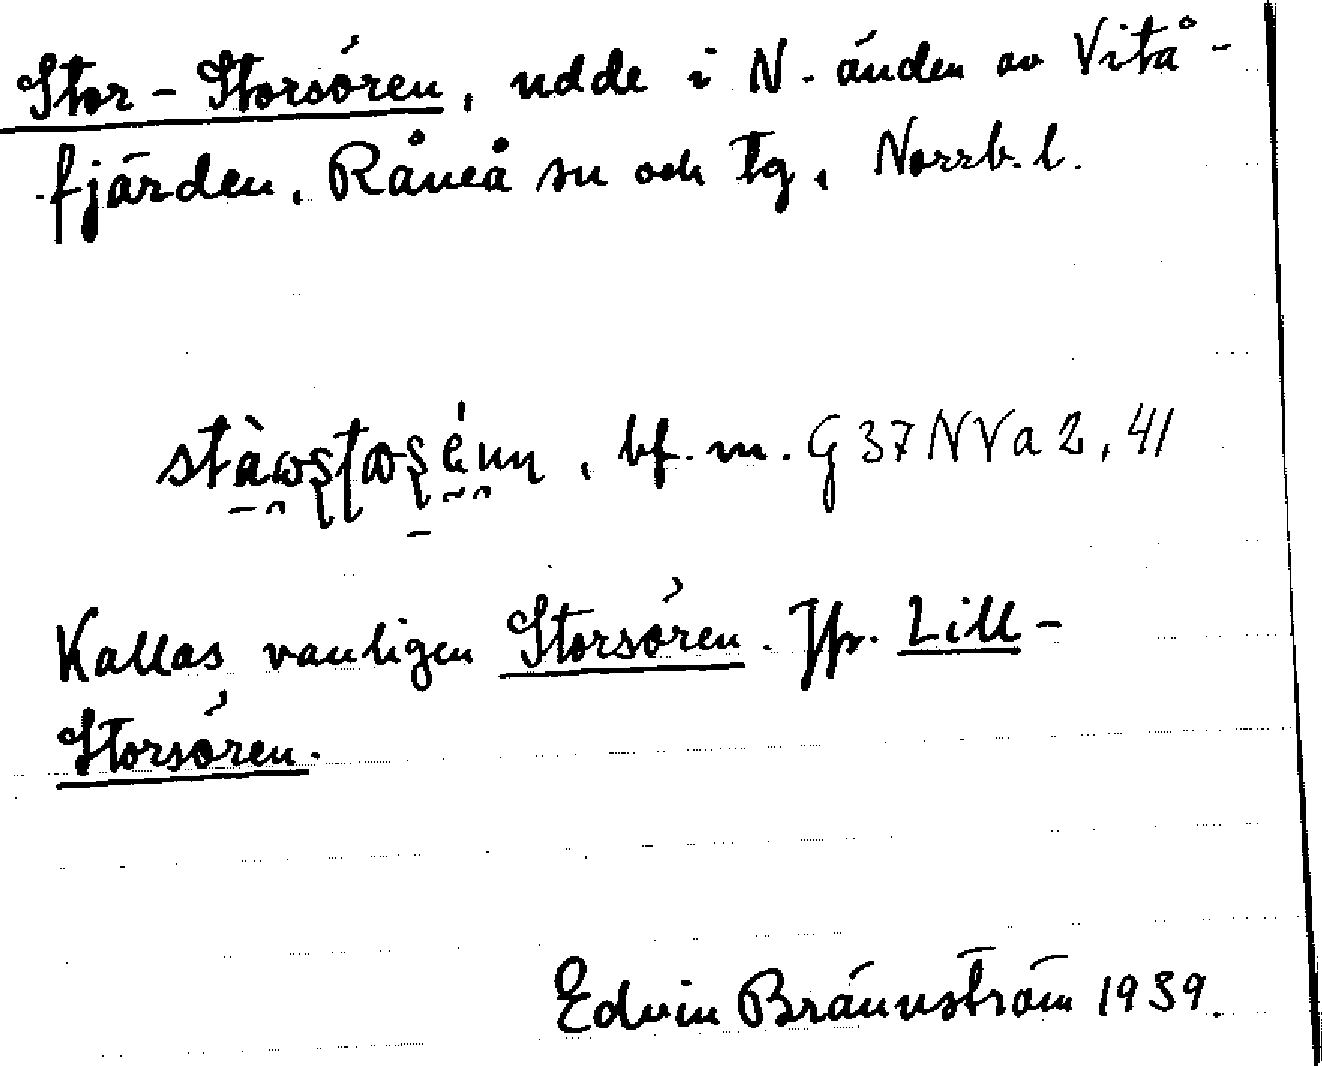 Stor-Storsören, udde i N. änden av Vitå-
fjärden, Råneå sn och tg, Norrb. l.
bf. m. G 37 NVa 2, 41
Kallas vanligen Storsören. Jfr. Lill-
Storsören.
Edvin Brännström 1939.